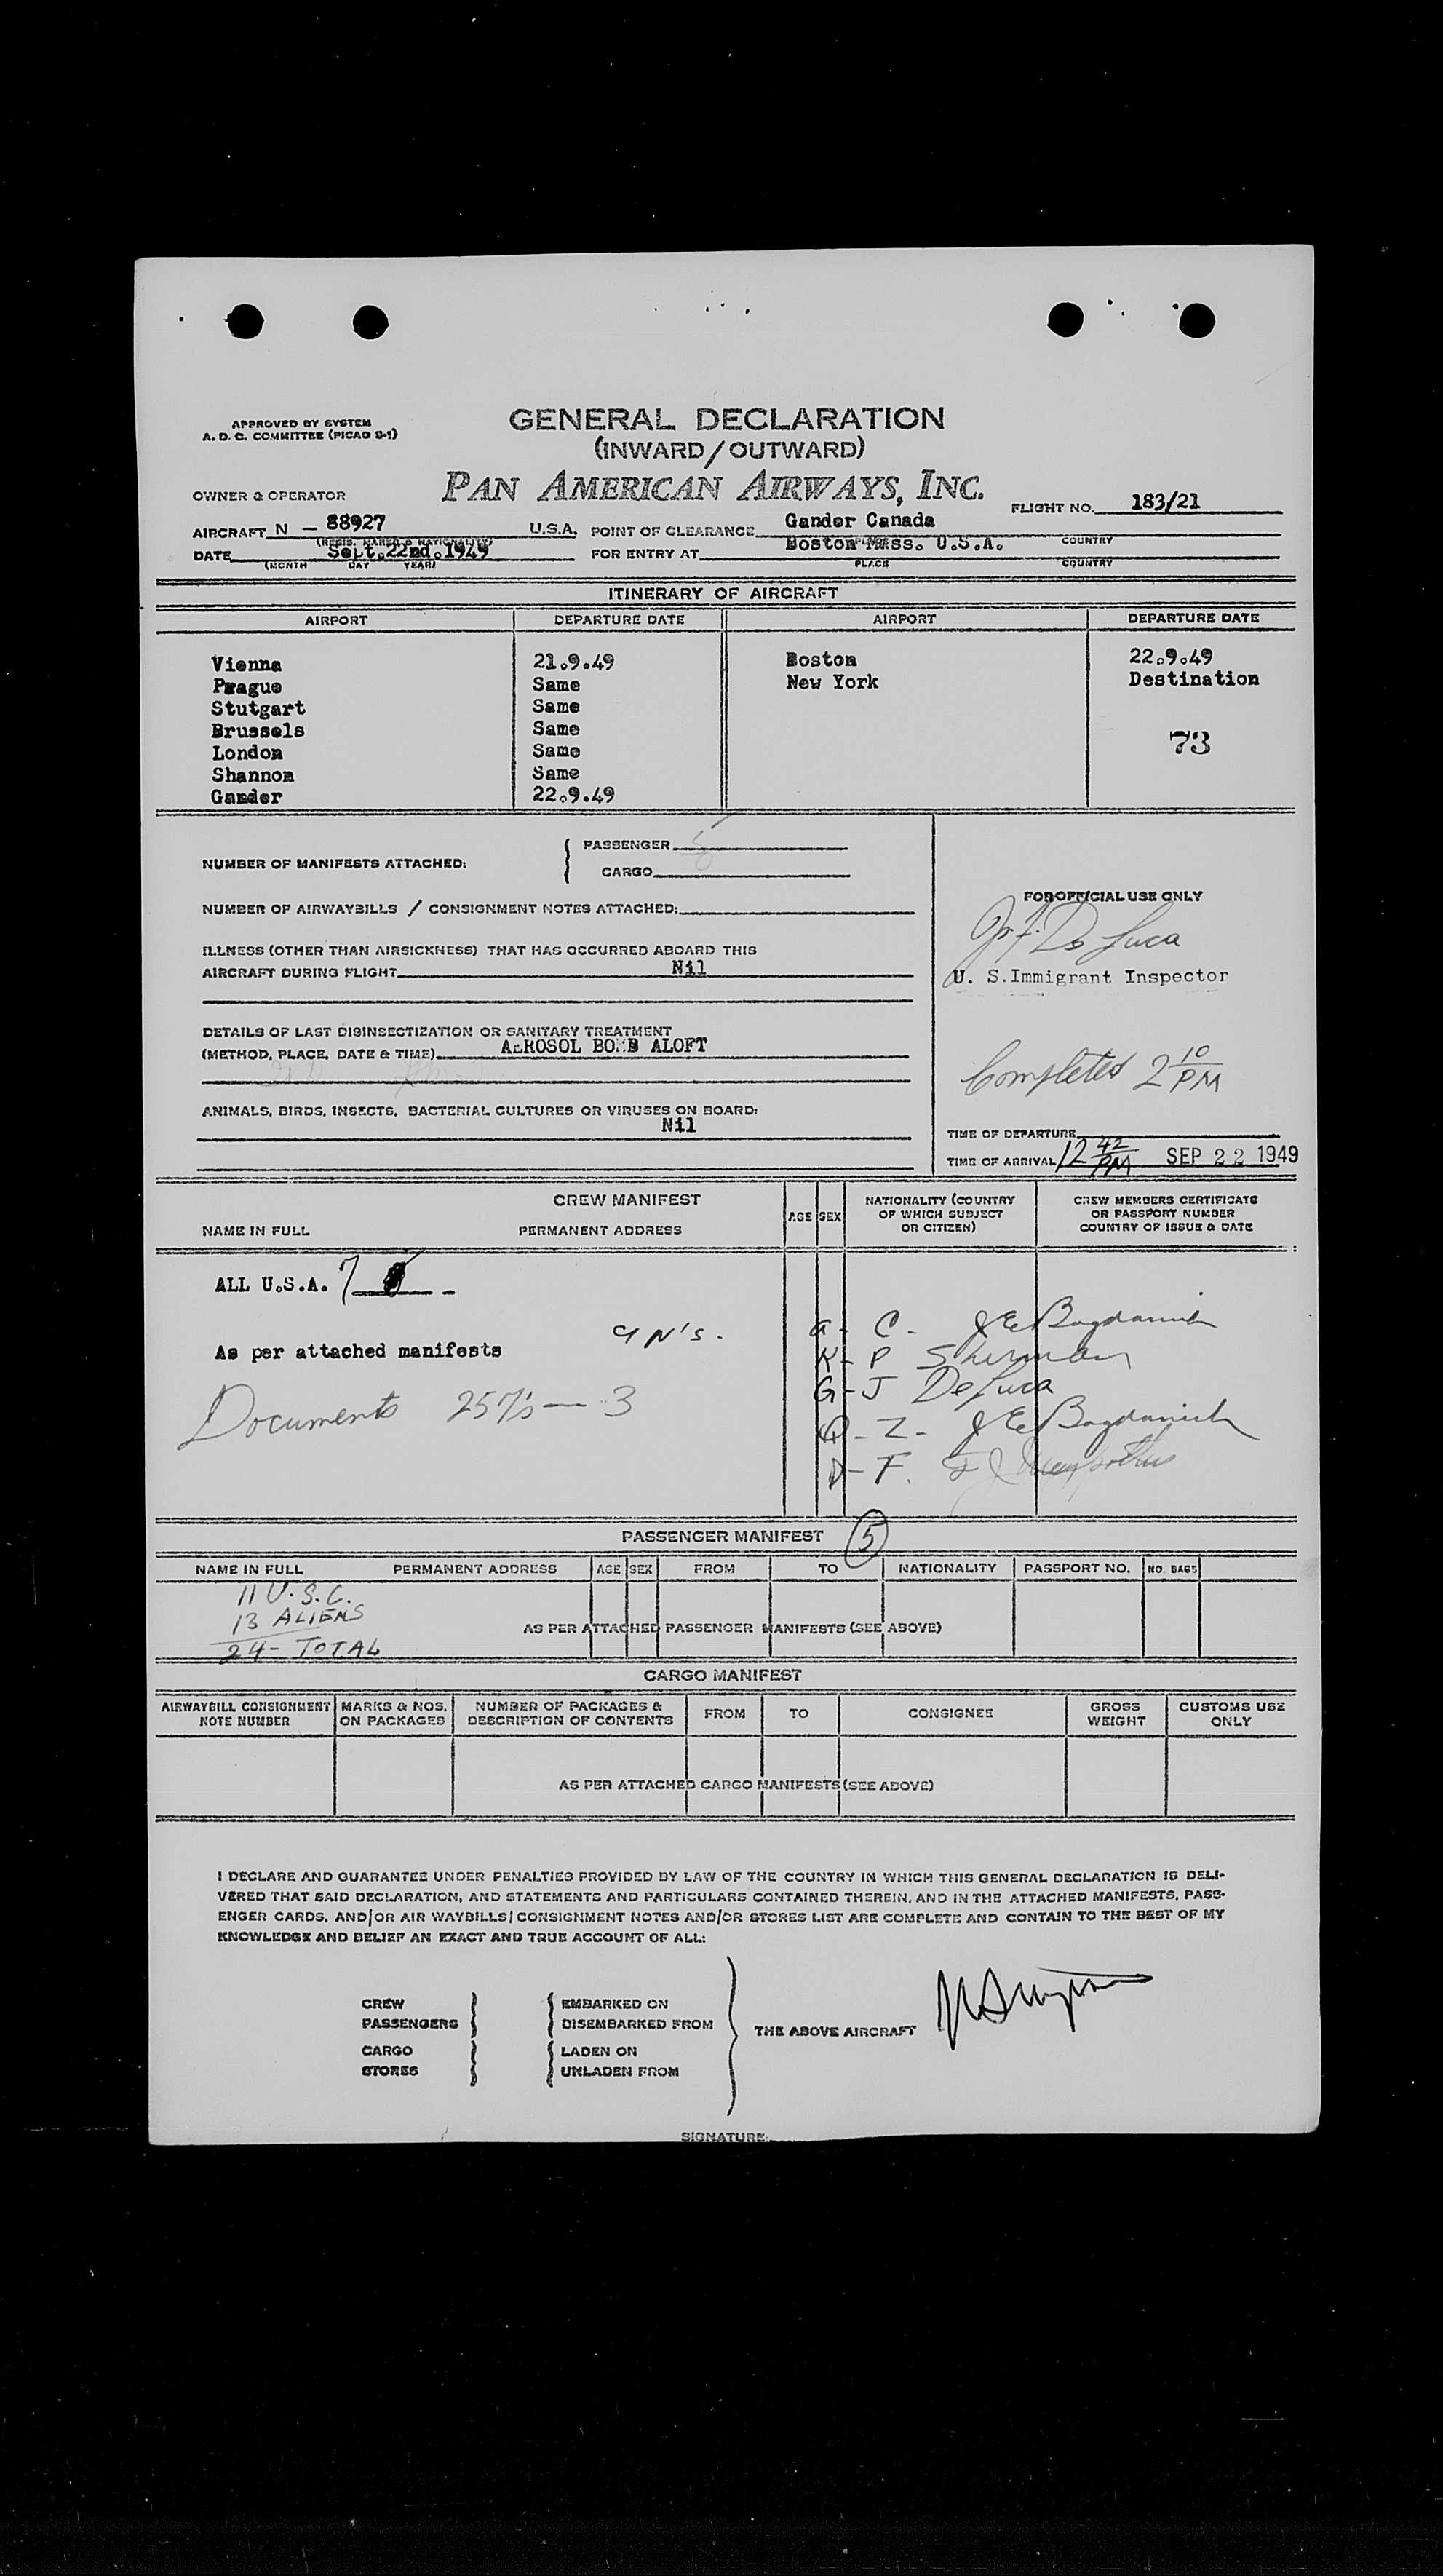 APPROVED BY SYSTEM
A. D. C. COMMITTEE (PICAO S-1)
GENERAL DECLARATION
(INWARD/OUTWARD)
OWNER & OPERATOR
PAN AMERICAN AIRWAYS, INC.
FLIGHT NO. 183/21
AIRCRAFT N - 88927 U.S.A. POINT OF CLEARANCE Gander Canada
(REGIS. MARKS & NATIONALITY) PLACE COUNTRY
DATE Sept.22nd.1949 FOR ENTRY AT Boston Mass. U.S.A.
(MONTH DAY YEAR) PLACE COUNTRY
ITINERARY OF AIRCRAFT
AIRPORT DEPARTURE DATE AIRPORT DEPARTURE DATE
Vienna 21.9.49 Boston 22.9.49
Prague Same New York Destination
Stutgart Same
Brussels Same
London Same 73
Shannon Same
Gander 22.9.49
NUMBER OF MANIFESTS ATTACHED: PASSENGER
CARGO
NUMBER OF AIRWAYBILLS / CONSIGNMENT NOTES ATTACHED:
FOR OFFICIAL USE ONLY
De Luca
U. S.Immigrant Inspector
ILLNESS (OTHER THAN AIRSICKNESS) THAT HAS OCCURRED ABOARD THIS
AIRCRAFT DURING FLIGHT Nil
DETAILS OF LAST DISINSECTIZATION OR SANITARY TREATMENT
(METHOD, PLACE, DATE & TIME) AEROSOL BOMB ALOFT
Completed 2 10 PM
ANIMALS, BIRDS, INSECTS, BACTERIAL CULTURES OR VIRUSES ON BOARD:
Nil
TIME OF DEPARTURE
TIME OF ARRIVAL 12 42 PM SEP 22 1949
CREW MANIFEST
NAME IN FULL PERMANENT ADDRESS AGE SEX NATIONALITY (COUNTRY OF WHICH SUBJECT OR CITIZEN) CREW MEMBERS CERTIFICATE OR PASSPORT NUMBER COUNTRY OF ISSUE & DATE
ALL U.S.A. 7
A - C - J E Bogdanich
As per attached manifests 9 N's.
K - P Sherman
G - J De Luca
Documents 257's — 3
Q - Z - J E Bogdanich
D - F.
PASSENGER MANIFEST 5
NAME IN FULL PERMANENT ADDRESS AGE SEX FROM TO NATIONALITY PASSPORT NO. NO. BAGS
11 U.S.C.
13 ALIENS
24 - TOTAL
AS PER ATTACHED PASSENGER MANIFESTS (SEE ABOVE)
CARGO MANIFEST
AIRWAYBILL CONSIGNMENT NOTE NUMBER MARKS & NOS. ON PACKAGES NUMBER OF PACKAGES & DESCRIPTION OF CONTENTS FROM TO CONSIGNEE GROSS WEIGHT CUSTOMS USE ONLY
AS PER ATTACHED CARGO MANIFESTS (SEE ABOVE)
I DECLARE AND GUARANTEE UNDER PENALTIES PROVIDED BY LAW OF THE COUNTRY IN WHICH THIS GENERAL DECLARATION IS DELI-
VERED THAT SAID DECLARATION, AND STATEMENTS AND PARTICULARS CONTAINED THEREIN, AND IN THE ATTACHED MANIFESTS, PASS-
ENGER CARDS, AND/OR AIR WAYBILLS/CONSIGNMENT NOTES AND/OR STORES LIST ARE COMPLETE AND CONTAIN TO THE BEST OF MY
KNOWLEDGE AND BELIEF AN EXACT AND TRUE ACCOUNT OF ALL:
CREW EMBARKED ON
PASSENGERS DISEMBARKED FROM
THE ABOVE AIRCRAFT
CARGO LADEN ON
STORES UNLADEN FROM
SIGNATURE: